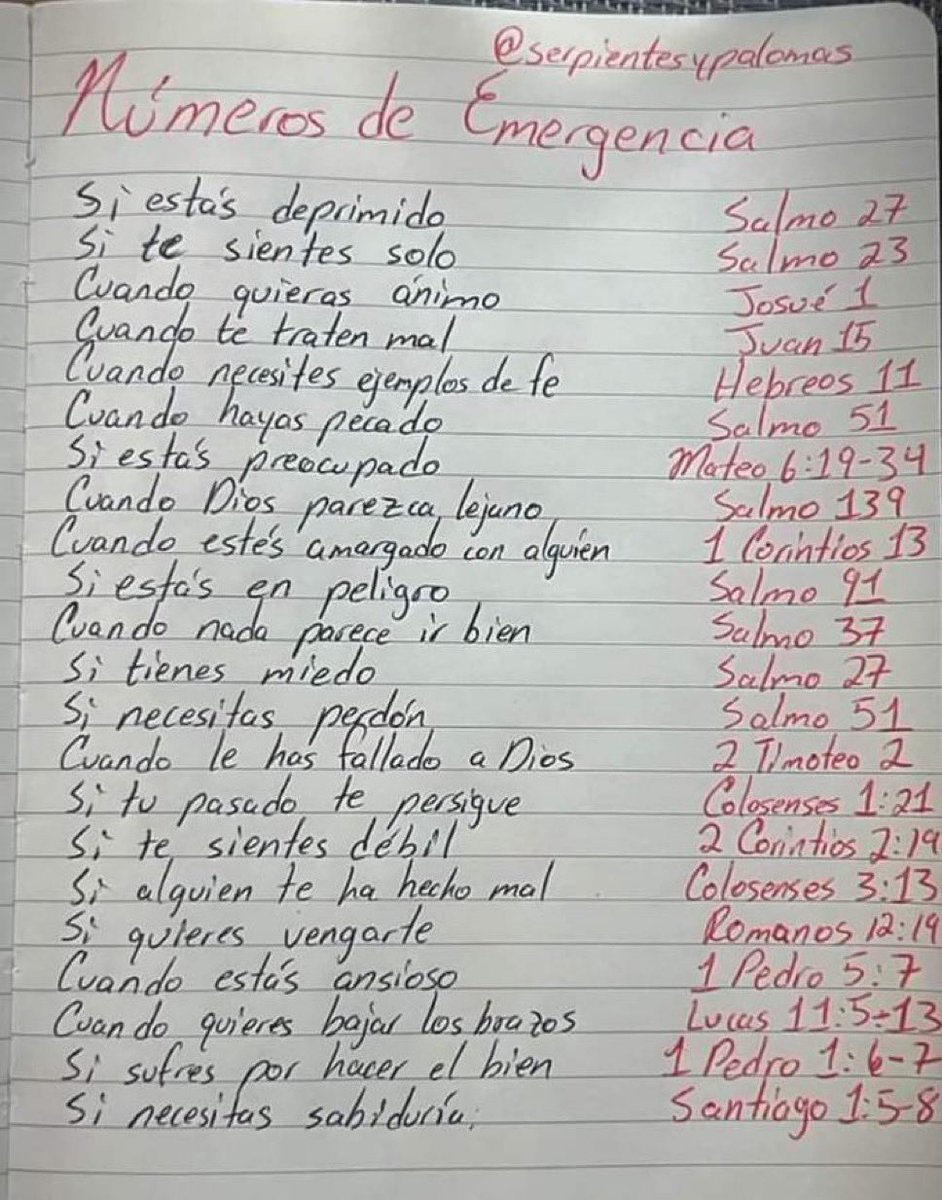 @serpientesypalomas
Números de Emergencia
Si estás deprimido Salmo 27
Si te sientes solo Salmo 23
Cuando quieras ánimo Josué 1
Cuando te traten mal Juan 15
Cuando necesites ejemplos de fe Hebreos 11
Cuando hayas pecado Salmo 51
Si estás preocupado Mateo 6:19-34
Cuando Dios parezca lejano Salmo 139
Cuando estés amargado con alguien 1 Corintios 13
Si estás en peligro Salmo 91
Cuando nada parece ir bien Salmo 37
Si tienes miedo Salmo 27
Si necesitas perdón Salmo 51
Cuando le has fallado a Dios 2 Timoteo 2
Si tu pasado te persigue Colosenses 1:21
Si te sientes débil 2 Corintios 2:19
Si alguien te ha hecho mal Colosenses 3:13
Si quieres vengarte Romanos 12:19
Cuando estás ansioso 1 Pedro 5:7
Cuando quieres bajar los brazos Lucas 11:5-13
Si sufres por hacer el bien 1 Pedro 1:6-7
Si necesitas sabiduría. Santiago 1:5-8